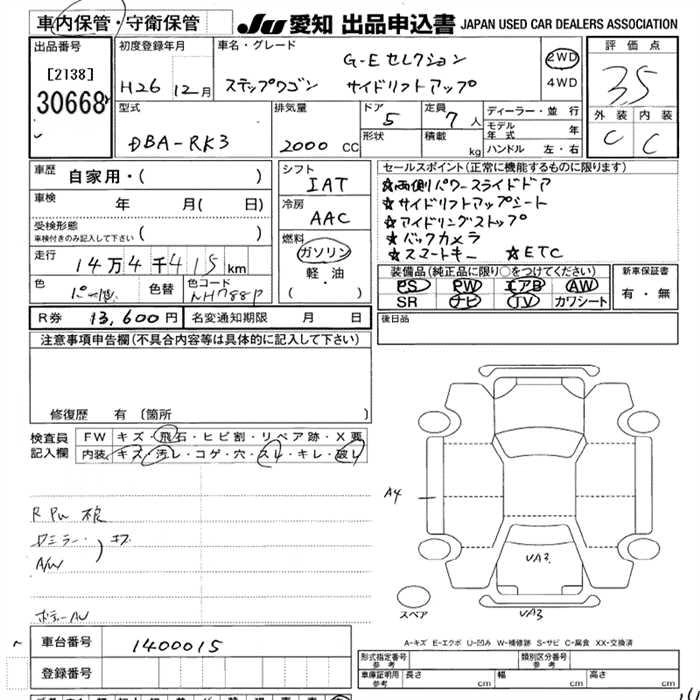 車内保管・守衛保管
JU 愛知 出品申込書 JAPAN USED CAR DEALERS ASSOCIATION
出品番号
[2138]
30668
初度登録年月
H26 12月
車名・グレード
ステップワゴン
G-Eセレクション
サイドリフトアップ
2WD
4WD
評価点
3.5
外装 内装
C C
型式
DBA-RK3
排気量
2000 CC
ドア
5
形状
定員
7人
積載
kg
ディーラー・並行
モデル年式 年
ハンドル 左・右
車歴
自家用・( )
車検
年 月( 日)
受検形態
車検付きのみ記入して下さい ( )
走行
14万4千415km
色
色替
色コード
NH788P
シフト
IAT
冷房
AAC
燃料
ガソリン
軽・油
( )
セールスポイント(正常に機能するものに限ります)
☆両側パワースライドドア
☆サイドリフトアップシート
☆アイドリングストップ
☆バックカメラ
☆スマートキー ☆ETC
装備品(純正品に限り○をつけてください)
PS PW エアB AW
SR ナビ TV カワシート
新車保証書
有・無
R券 13,600円 名変通知期限 月 日
後日品
注意事項申告欄(不具合内容等は具体的に記入して下さい)
修復歴 有 〔箇所 〕
検査員記入欄
FW キズ・飛石・ヒビ割・リペア跡・X要
内装 キズ・汚レ・コゲ・穴・スレ・キレ・破レ
A4
R PW
ドミラー
A/W
VA3
VA3
スペア
A-キズ E-エクボ U-凹み W-補修跡 S-サビ C-腐食 XX-交換済
車台番号
1400015
登録番号
形式指定番号
参考
類別区分番号
参考
車庫証明用
参考
長さ cm 幅 cm 高さ cm